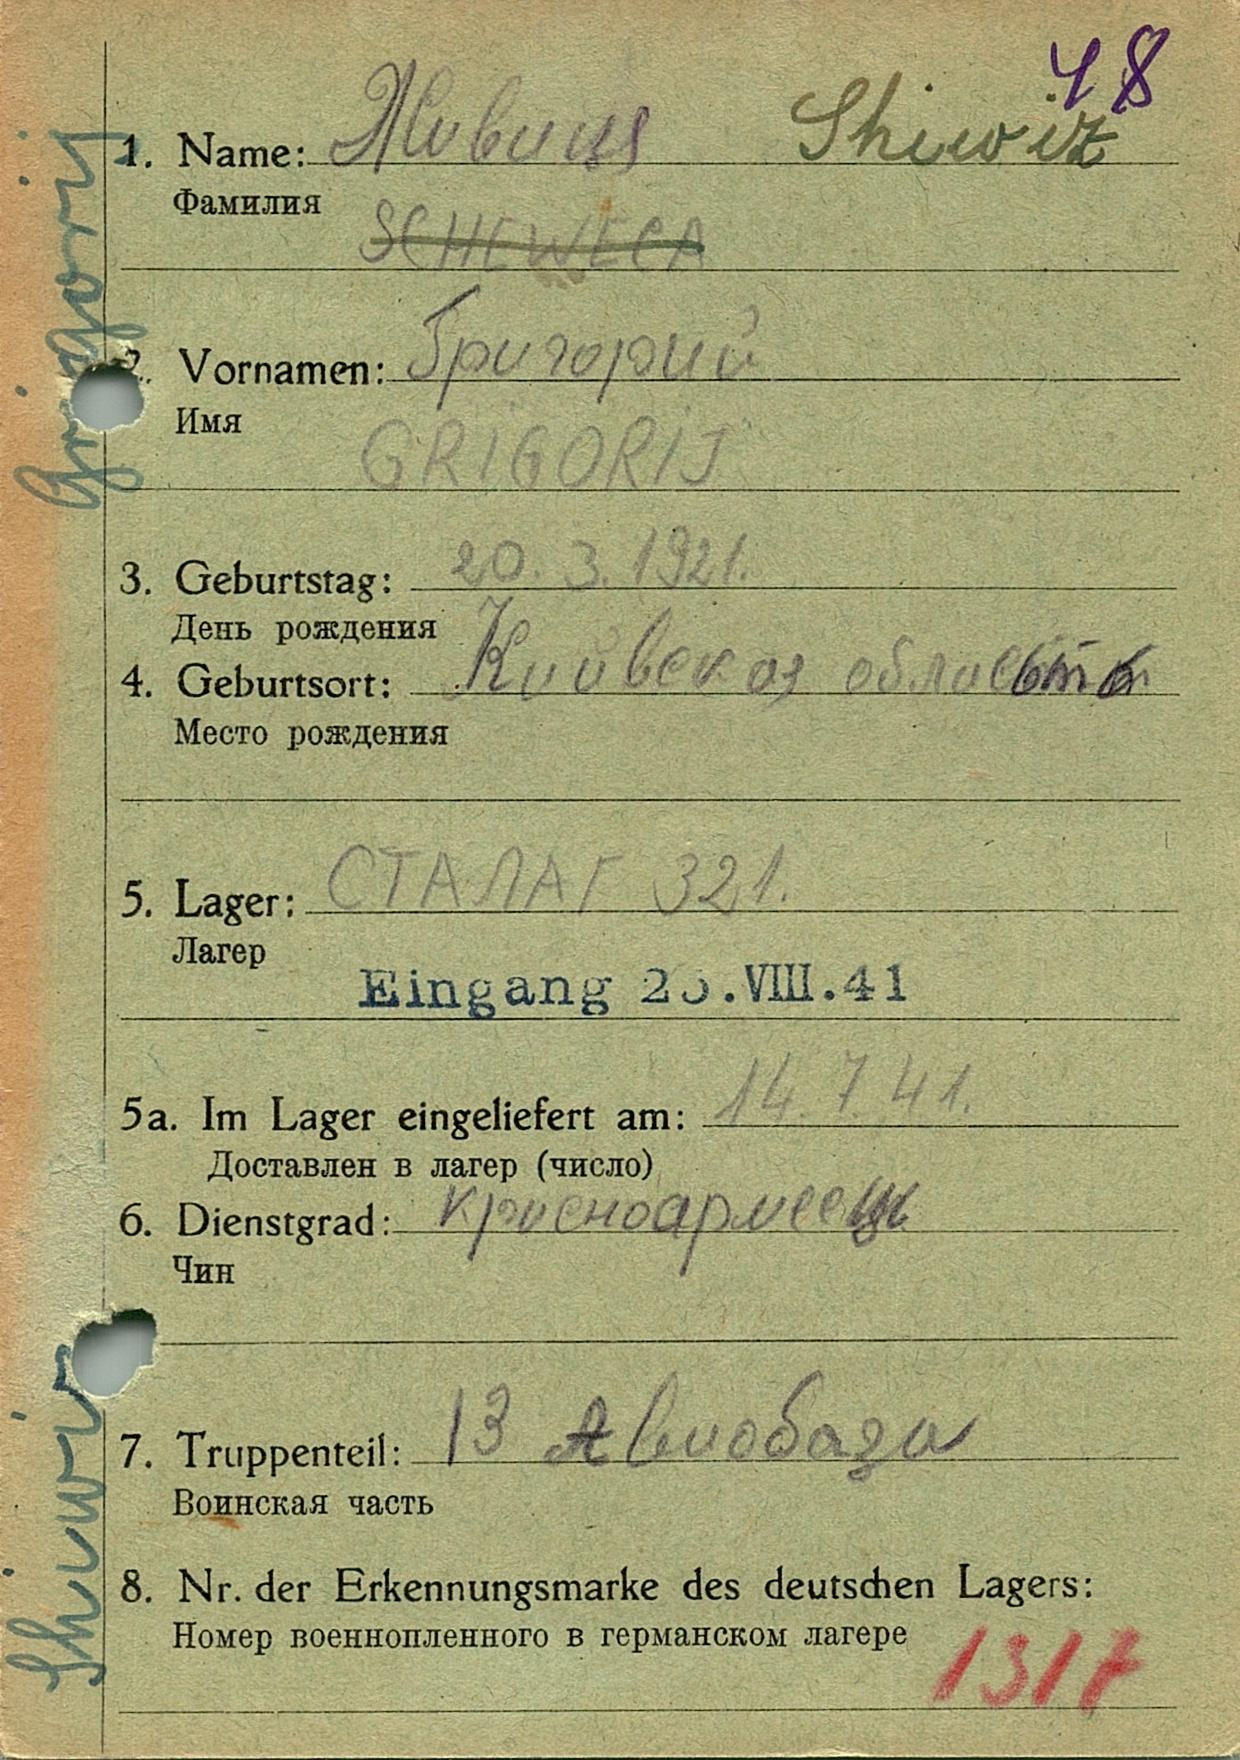 48
1. Name: Живиця Shiwiz
Фамилия
SCHEWECA
2. Vornamen: Григорий
Имя
GRIGORIJ
3. Geburtstag: 20. 3. 1921.
День рождения
4. Geburtsort: Киивская область
Место рождения
5. Lager: СТАЛАГ 321.
Лагер
Eingang .VIII.41
5a. Im Lager eingeliefert am: 14. 7. 41.
Доставлен в лагер (число)
6. Dienstgrad: красноармеец
Чин
7. Truppenteil: 13 Авиобаза
Воинская часть
8. Nr. der Erkennungsmarke des deutschen Lagers:
Номер военнопленного в германском лагере
1317
Shiwiz
Grigorij